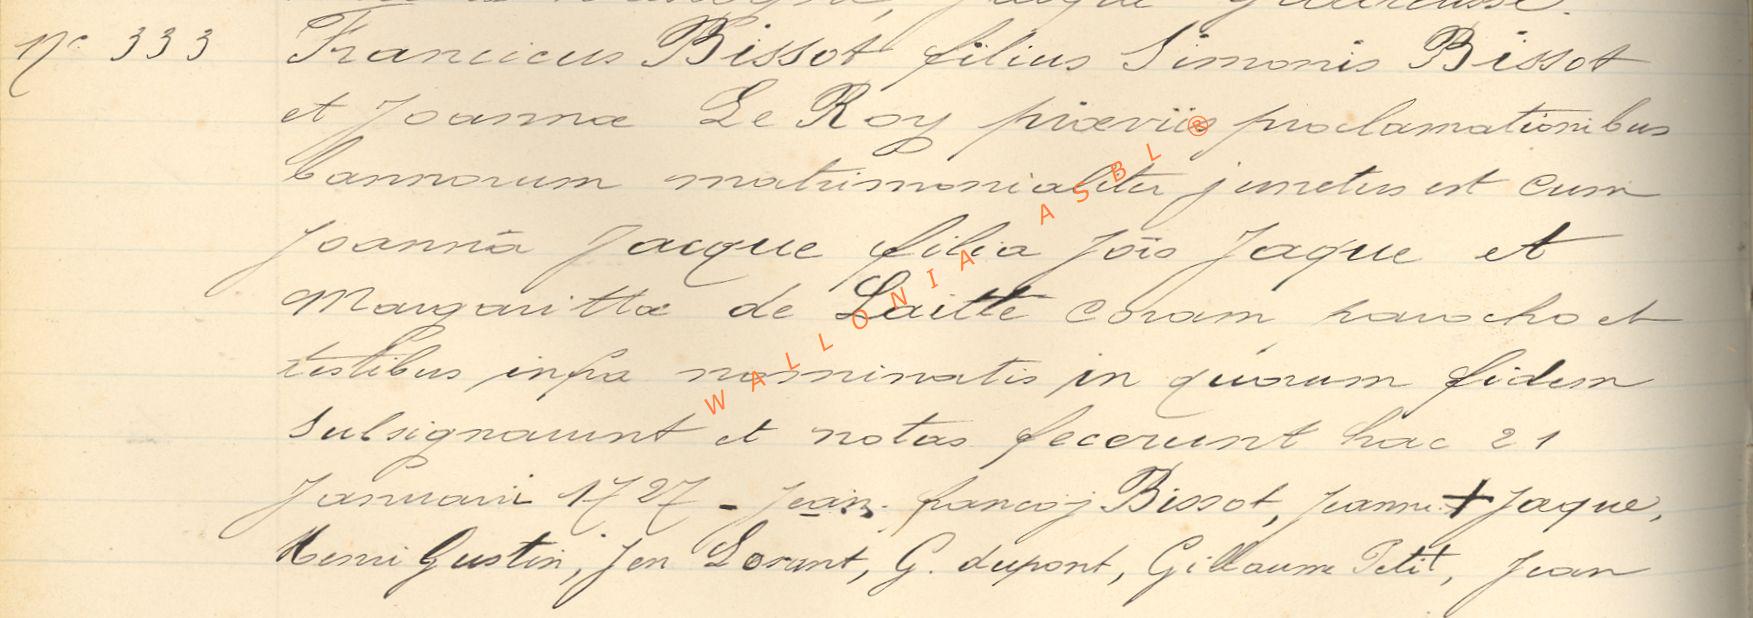 No 333 Francicus Bissot filius Simonis Bissot
et Joannæ Le Roy præviis proclamationibus
bannorum matrimonialiter junctus est cum
Joannā Jacque filia Joīs Jaque et
Margarittæ de Laitte coram parocho et
testibus infra nominatis in quorum fidem
subsignarunt et notas fecerunt hac 21
Januarii 1727 - Jean francoj Bissot, Jeanne + Jaque,
Henri Gustin, Jen Lorant, G. dupont, Gillaume Petit, Jean
WALLONIA ASBL ®